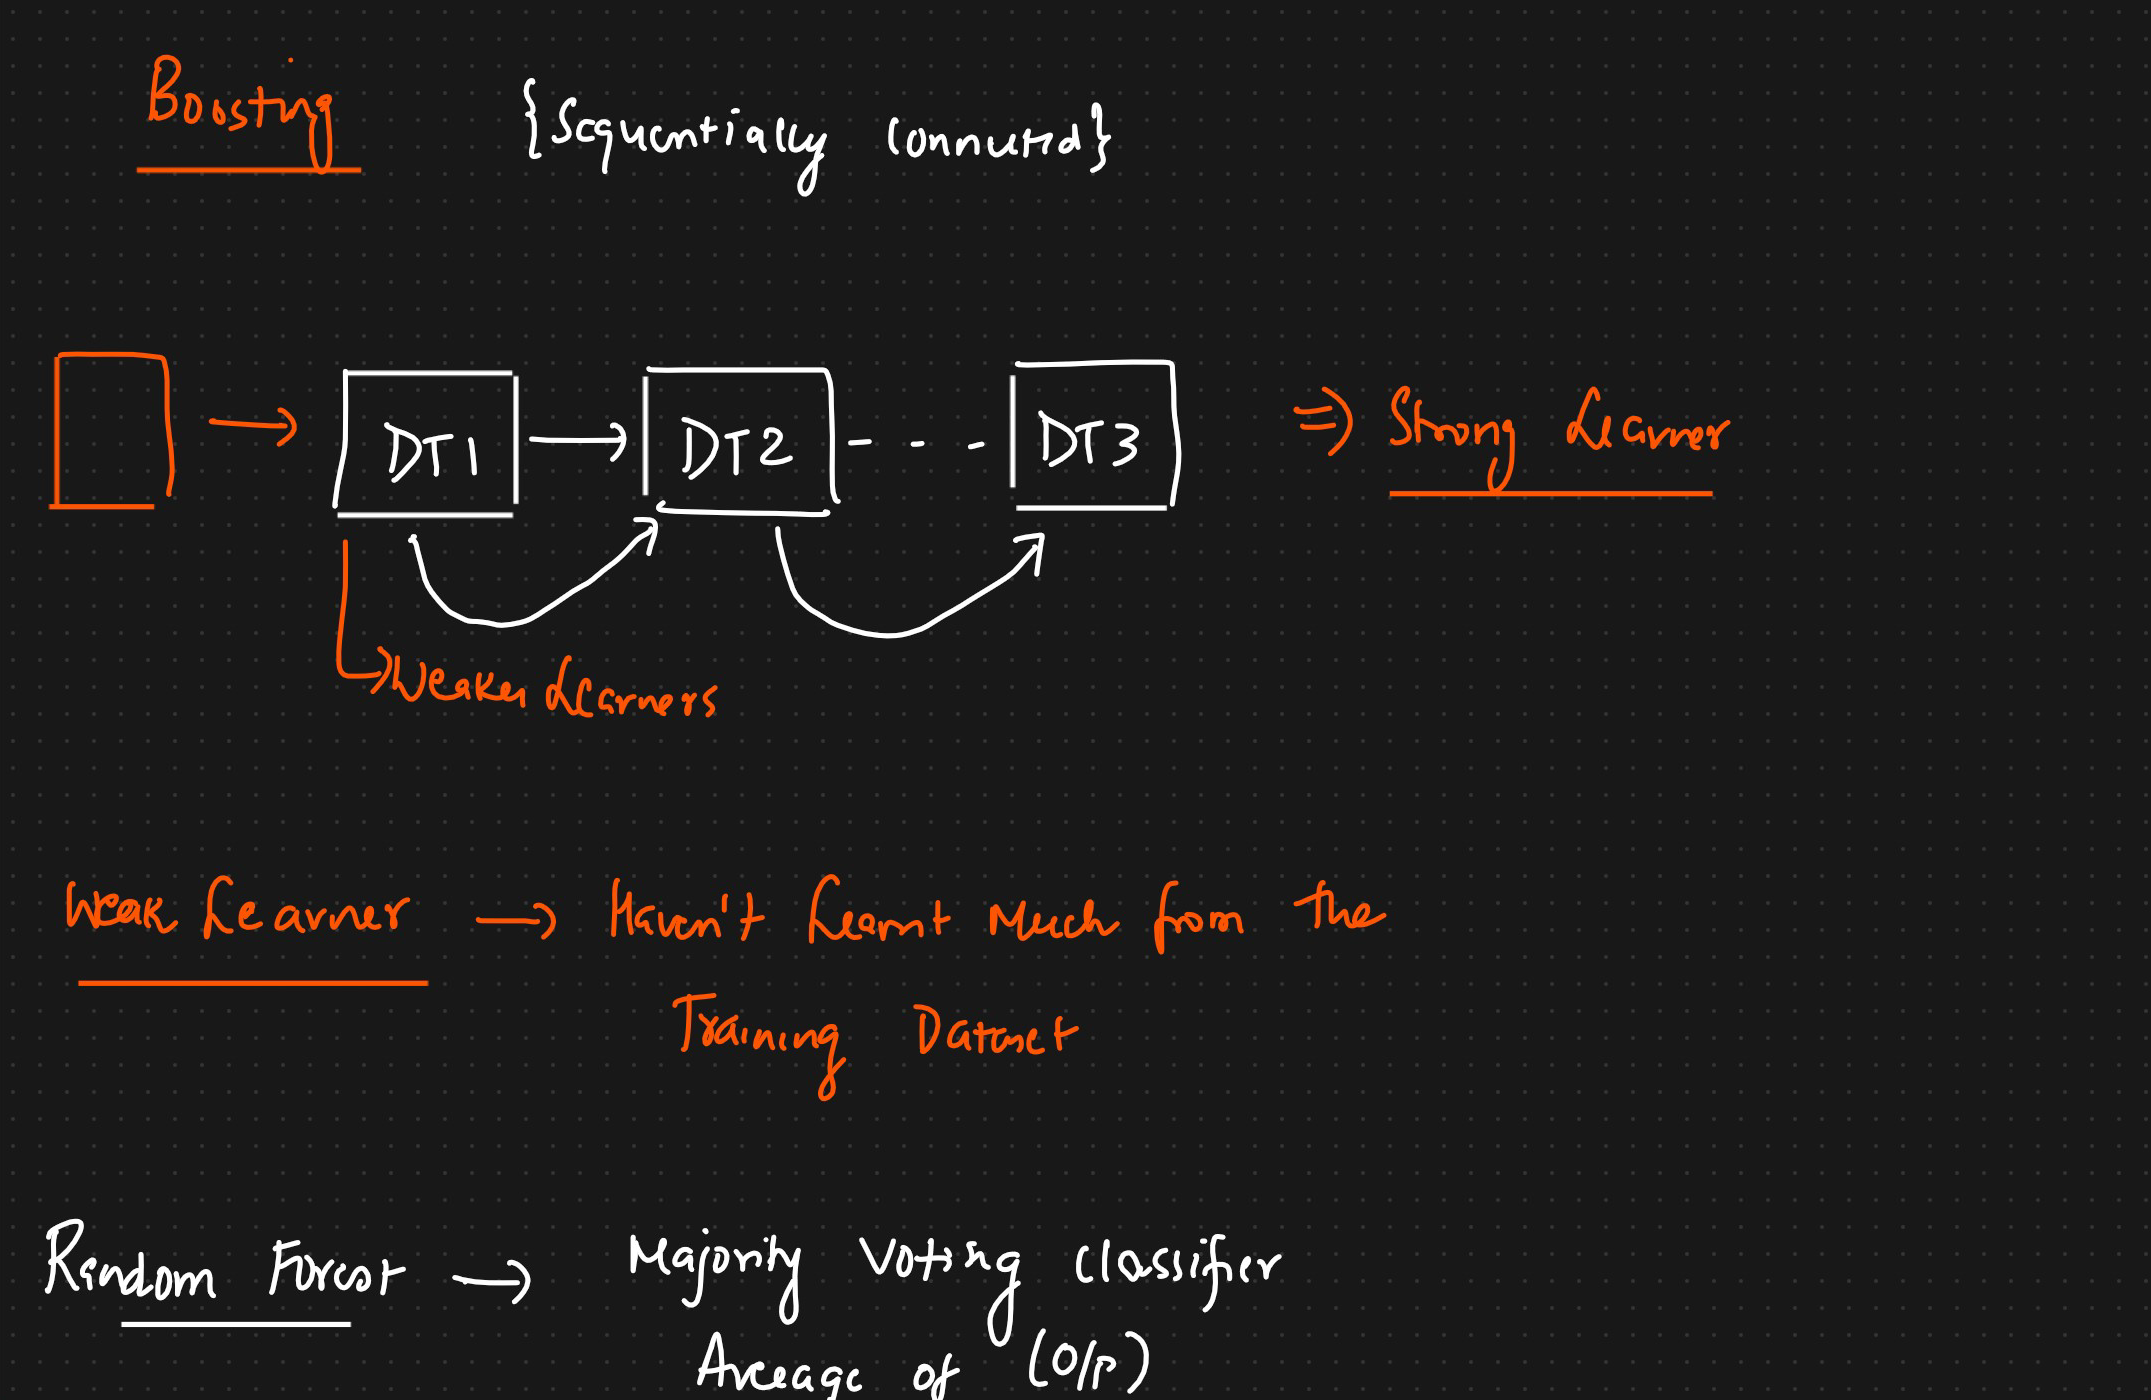 Boosting {Sequentially Connected}
DT1 DT2 - - - DT3 ⇒ Strong Learner
Weaker Learners
Weak Learner → Haven't Learnt Much from the
Training Dataset
Random Forest → Majority Voting Classifier
Average of (O/P)